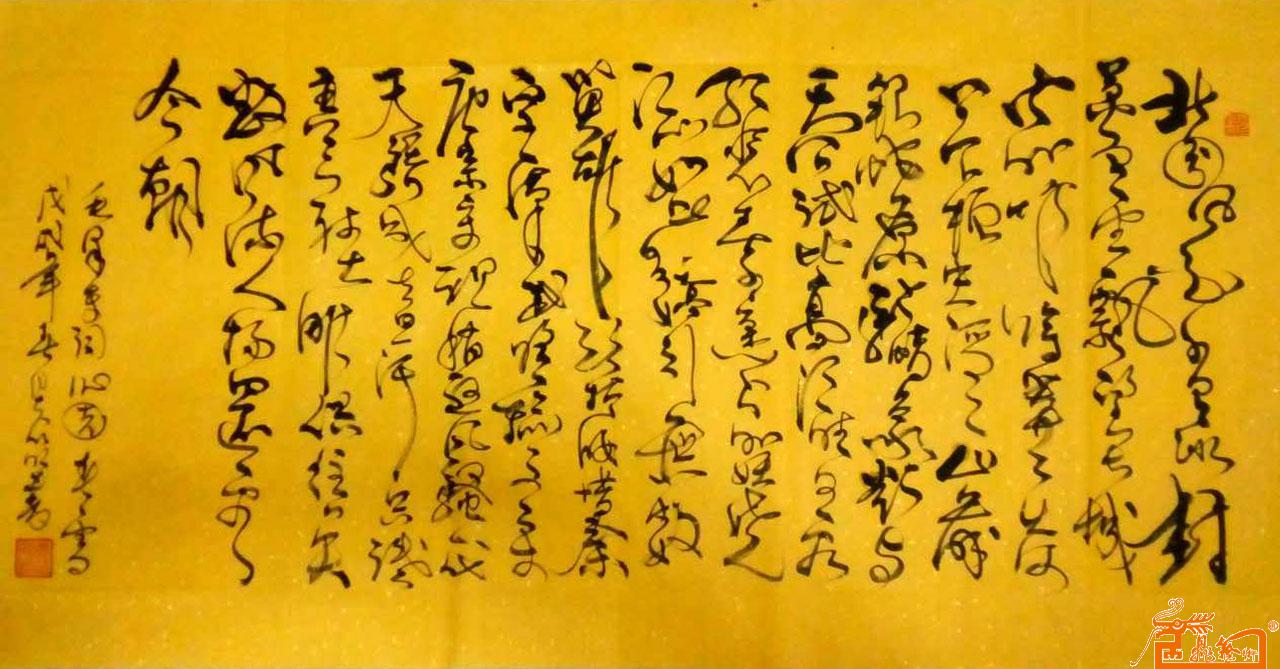 北国风光千里冰封
万里雪飘望长城
内外惟余莽莽大河
上下顿失滔滔山舞
银蛇原驰蜡象欲与
天公试比高须晴日看
红装素裹分外妖娆
江山如此多娇引无数
英雄竞折腰惜秦
皇汉武略输文采
唐宗宋祖稍逊风骚一代
天骄成吉思汗只识
弯弓射大雕俱往矣
数风流人物还看
今朝
毛泽东词沁园春雪
戊戌年春